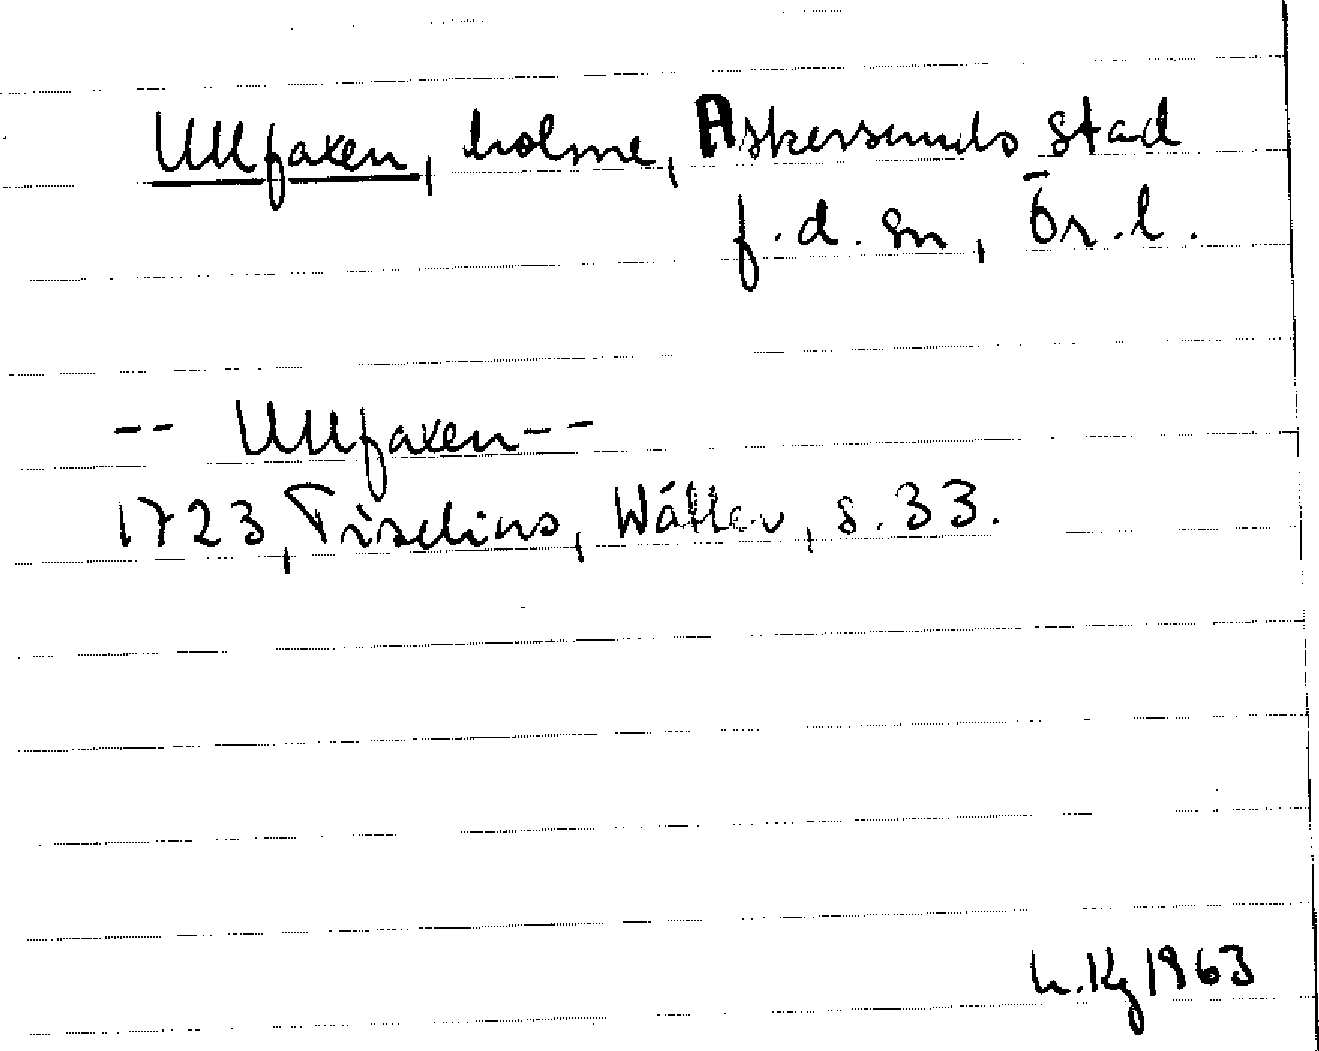 Ullfaxen, holme, Askersunds stad
f.d. sn, Ör. l.
-- Ullfaxen --
1723, Tiselius, Wätter, s. 33.
1963